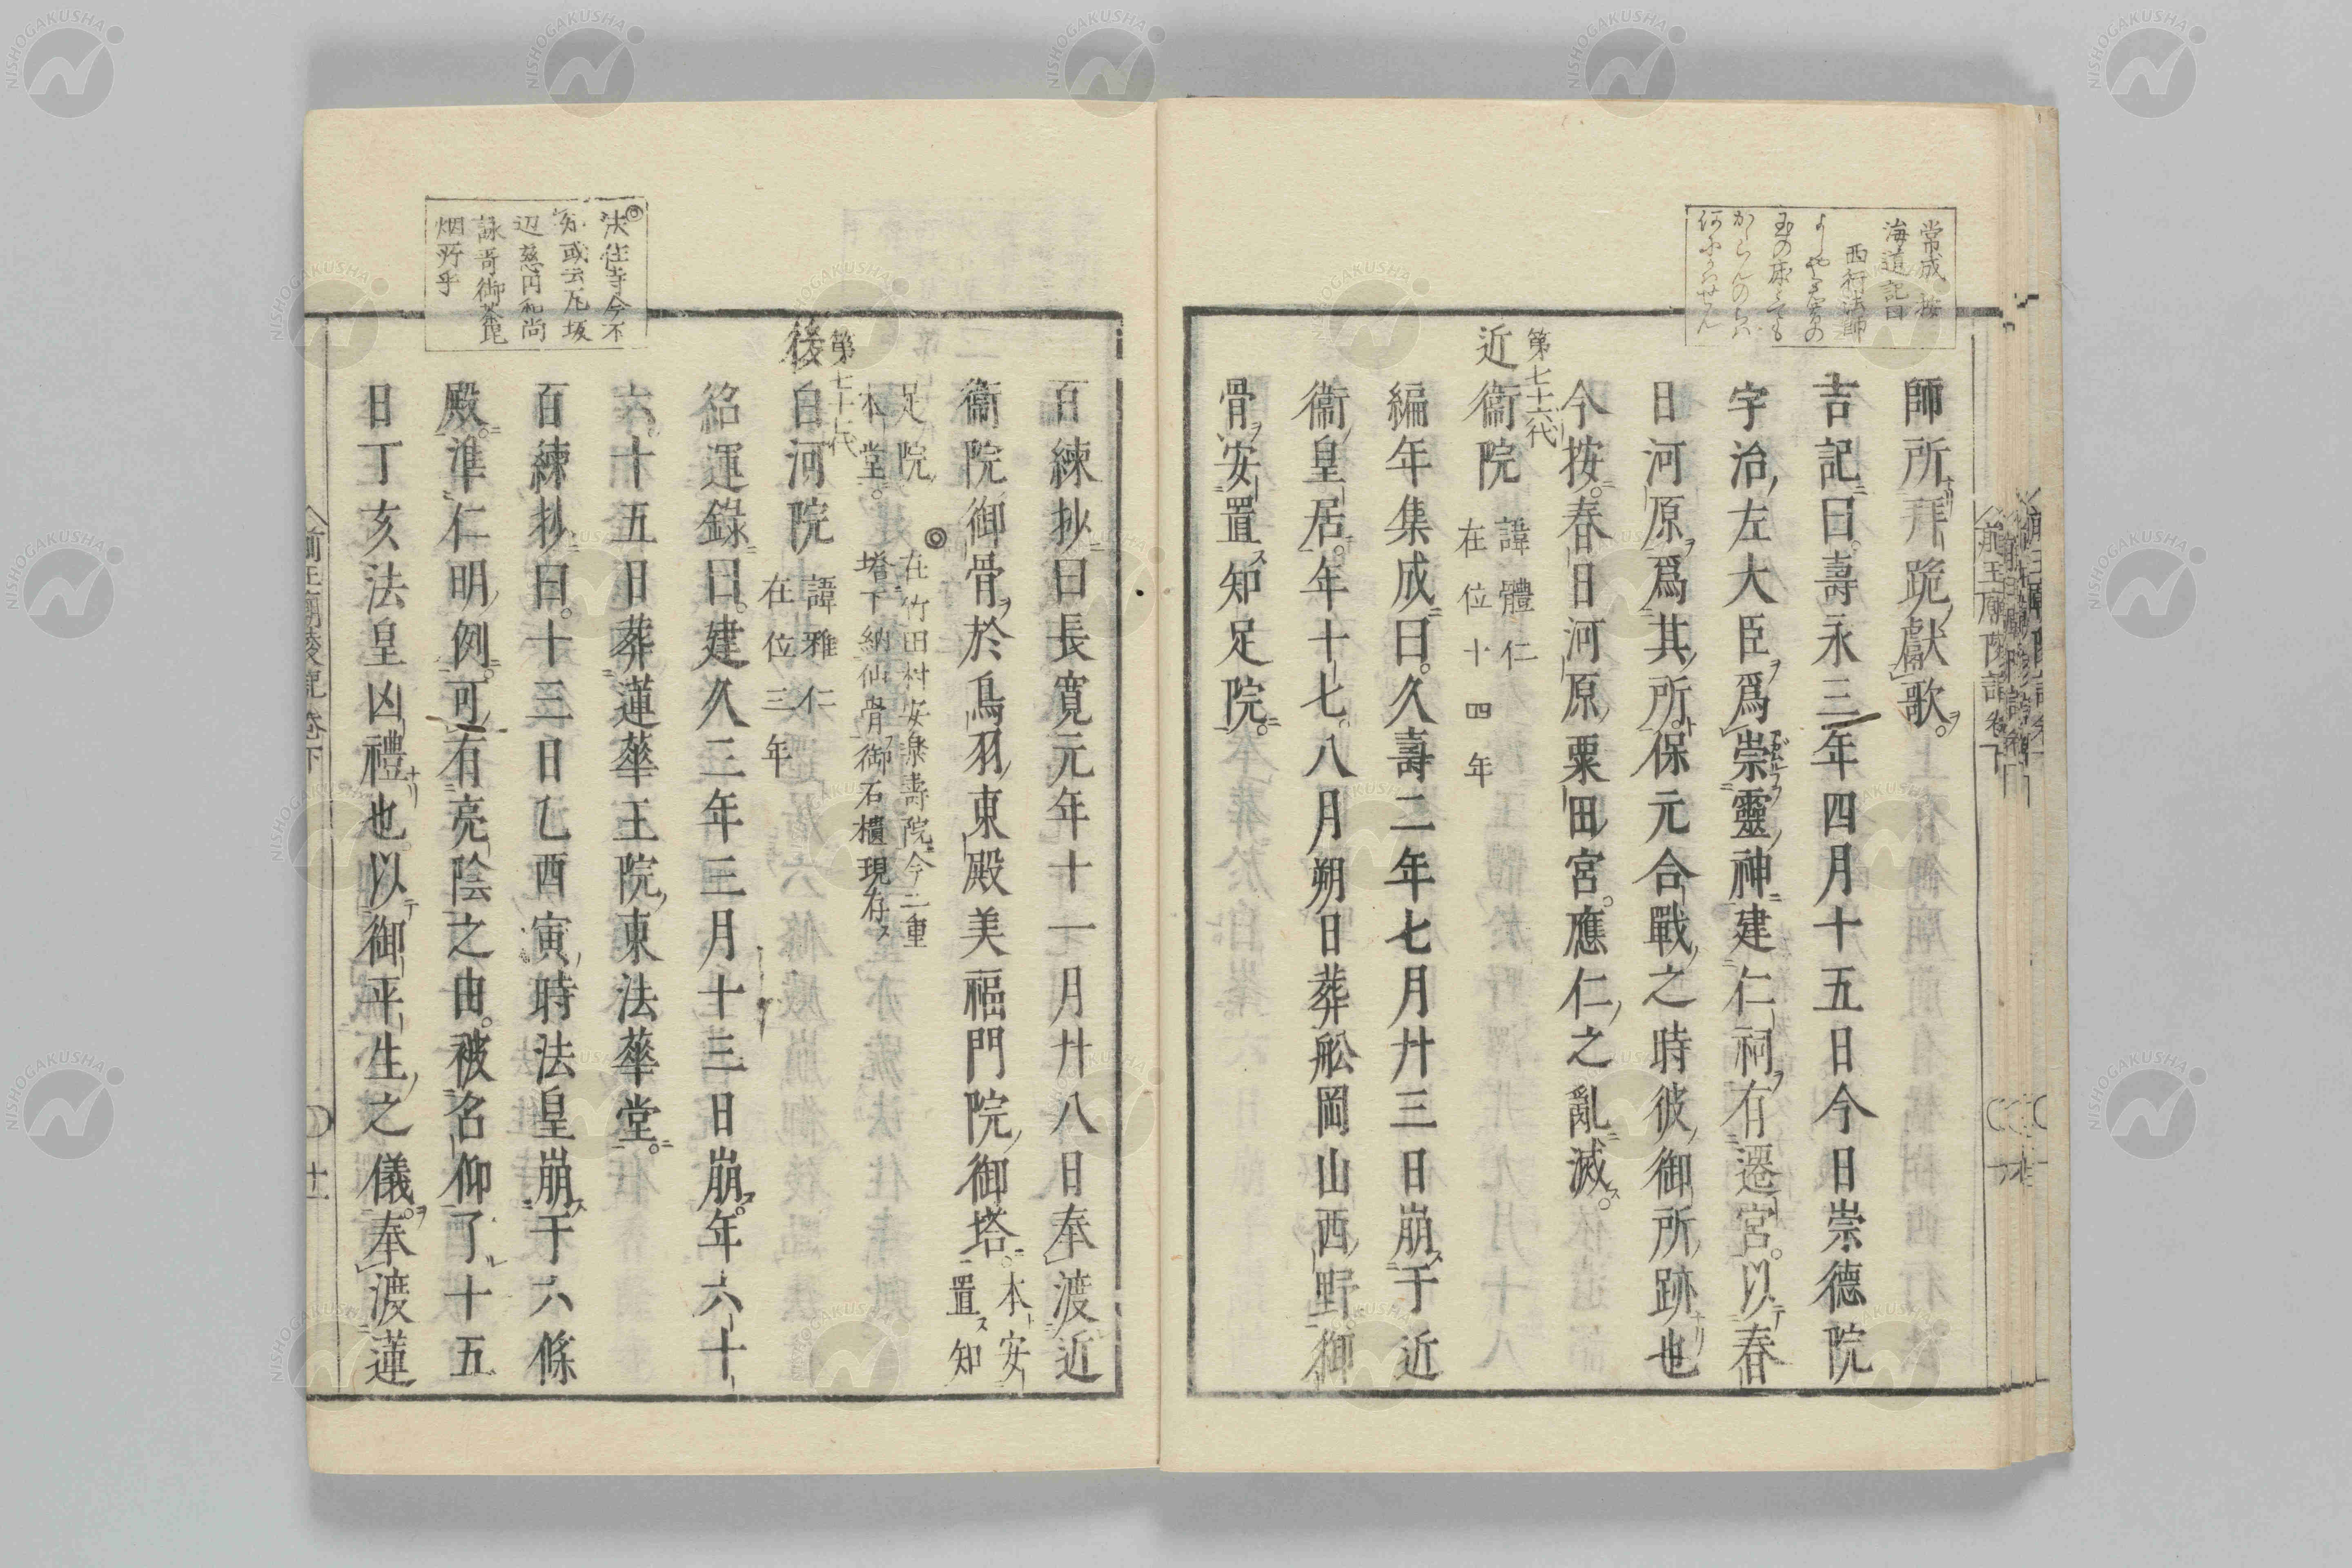 常成按
海道記曰
西行法師
よしや君昔の
玉の床とても
かゝらんのちは
何にかはせん
師所拜跪獻歌
吉記曰壽永三年四月十五日今日崇德院
宇治左大臣爲崇靈神建仁祠有遷宮以春
日河原爲其所保元合戰之時彼御所跡也
今按春日河原粟田宮應仁之亂滅
第七十六代
近衞院
諱體仁
在位十四年
編年集成曰久壽二年七月廿三日崩于近
衞皇居年十七八月朔日葬舩岡山西野御
骨安置知足院
百練抄曰長寛元年十一月廿八日奉渡近
衞院御骨於鳥羽東殿美福門院御塔
本安
置知
足院
本堂
◎在竹田村安樂壽院今二重
塔下納仙骨御石櫃現存
第七十七代
後白河院
諱雅仁
在位三年
紹運錄曰建久三年三月十三日崩年六十
六十五日葬蓮華王院東法華堂
百練抄曰十三日乙酉寅時法皇崩于六條
殿準仁明例可有亮陰之由被名仰了十五
日丁亥法皇凶禮也以御平生之儀奉渡蓮
◎法住寺今不
知或云瓦坂
辺慈円和尚
詠哥御荼毘
烟所乎
前王廟陵記卷下
十一